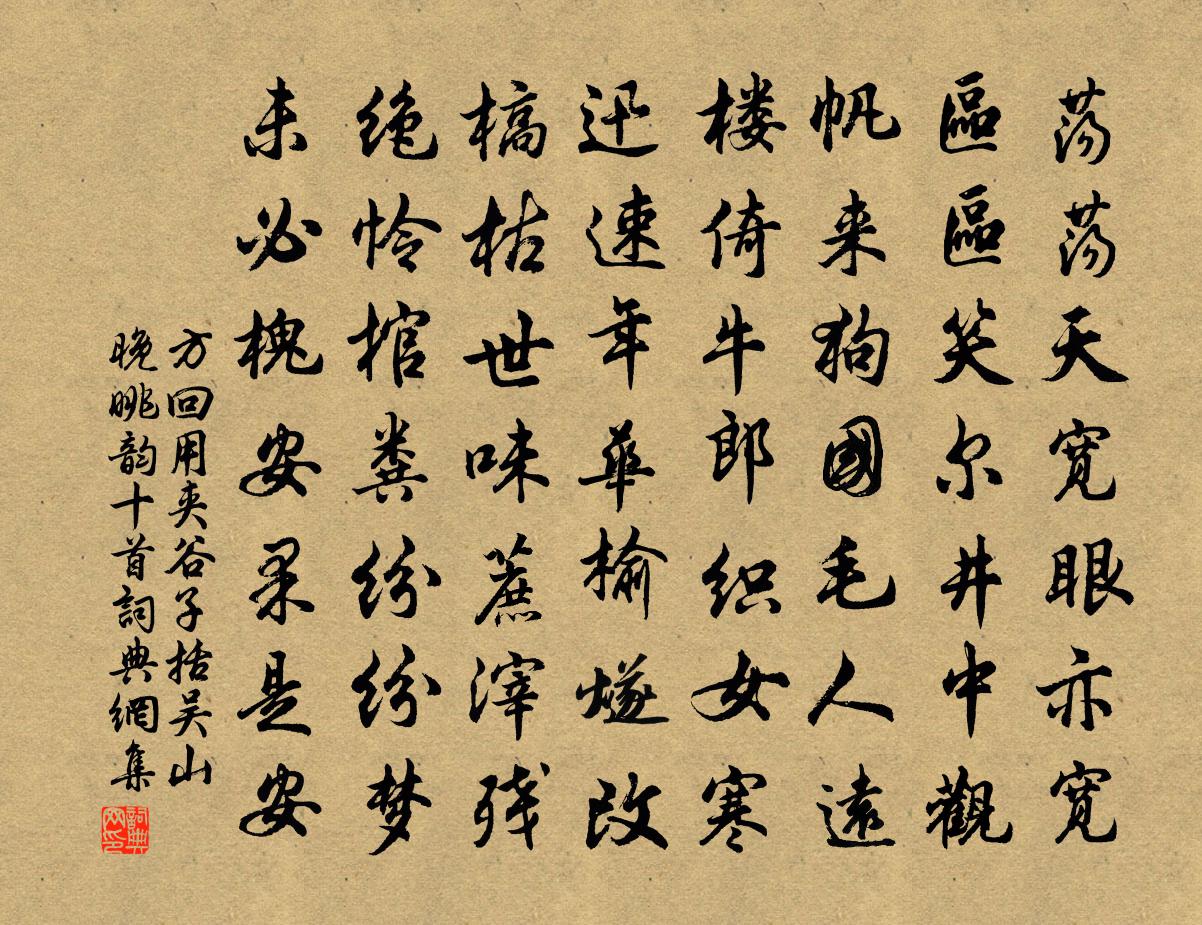 荡荡天宽眼亦宽
區區笑尔井中觀
帆来狗國毛人遠
楼倚牛郎织女寒
迅速年華榆燧改
槁枯世味蔗滓残
绝怜棺粪纷纷梦
未必槐安果是安
方回用夹谷子括吴山
晚眺韵十首詞典網集
詞典網印